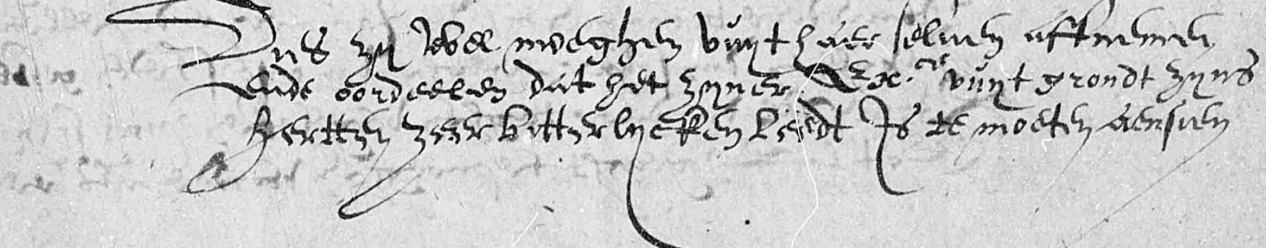 Dies zy wel moeghen vuyt haer seluen affnemen
Ende oordeelen dat het zyner Ex.cie vuyt grondt zyns
hertten zeer bitterlycken leedt Is te moeten aensien